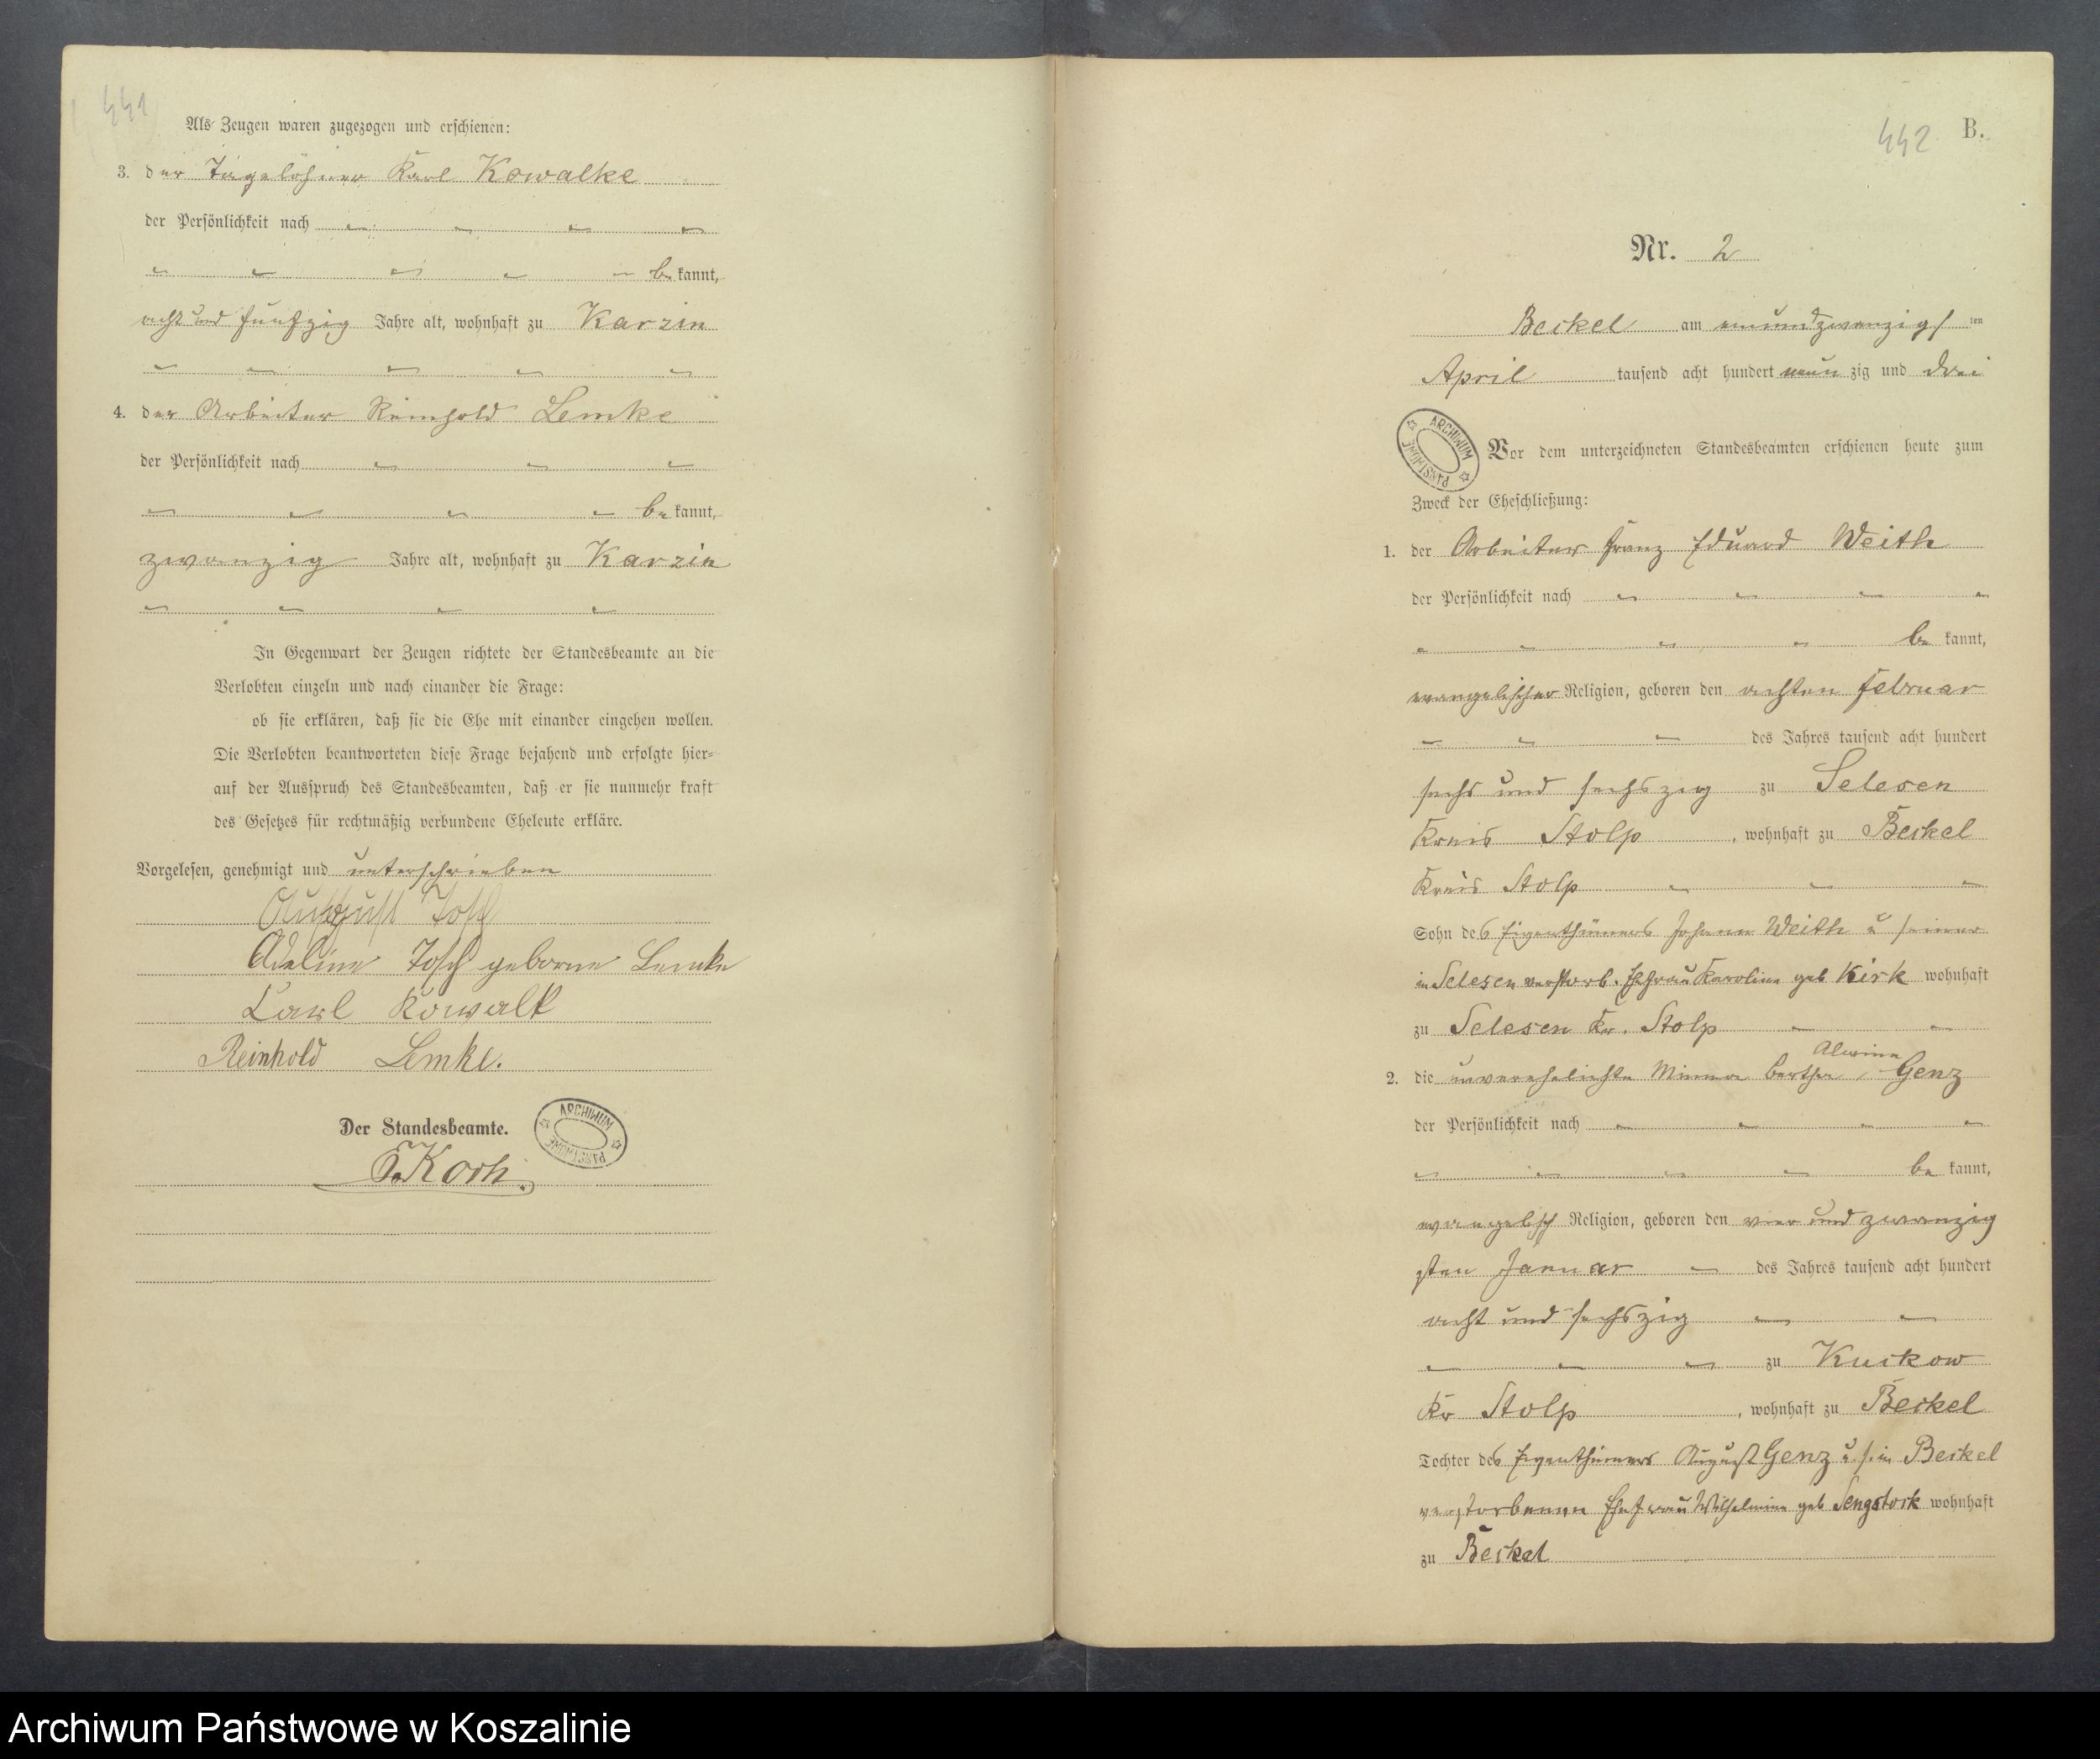 441
Als Zeugen waren zugezogen und erschienen:
3. der Tagelöhner Karl Kowalke
der Persönlichkeit nach
be kannt,
acht und fünfzig Jahre alt, wohnhaft zu Karzin
4. der Arbeiter Reinhold Lemke
der Persönlichkeit nach
be kannt,
zwanzig Jahre alt, wohnhaft zu Karzin
In Gegenwart der Zeugen richtete der Standesbeamte an die
Verlobten einzeln und nach einander die Frage:
ob sie erklären, daß sie die Ehe mit einander eingehen wollen.
Die Verlobten beantworteten diese Frage bejahend und erfolgte hier-
auf der Ausspruch des Standesbeamten, daß er sie nunmehr kraft
des Gesetzes für rechtmäßig verbundene Eheleute erkläre.
Vorgelesen, genehmigt und unterschrieben
August Tosch
Adeline Tosch geborne Lemke
Carl Kowalk
Reinhold Lemke.
Der Standesbeamte.
Koch.
ARCHIWUM PAŃSTWOWE
442 B.
Nr. 2
Beckel am einundzwanzigs ten
April tausend acht hundert neun zig und drei
ARCHIWUM PAŃSTWOWE
Vor dem unterzeichneten Standesbeamten erschienen heute zum
Zweck der Eheschließung:
1. der Arbeiter Franz Eduard Weith
der Persönlichkeit nach
be kannt,
evangelischer Religion, geboren den achten Februar
des Jahres tausend acht hundert
sechs und sechszig zu Selesen
Kreis Stolp, wohnhaft zu Beckel
Kreis Stolp
Sohn des Eigenthümers Johann Weith u seiner
in Selesen verstorb. Ehefrau Karoline geb Kirk wohnhaft
zu Selesen Kr. Stolp
Alwine
2. die unverehelichte Minna Bertha, Genz
der Persönlichkeit nach
be kannt,
evangelisch Religion, geboren den vier und zwanzig
sten Januar des Jahres tausend acht hundert
acht und sechszig
zu Kuckow
Kr Stolp, wohnhaft zu Beckel
Tochter des Eigenthümers August Genz u. s. in Beckel
verstorbenen Ehefrau Wilhelmine geb Sengstock wohnhaft
zu Beckel
Archiwum Państwowe w Koszalinie